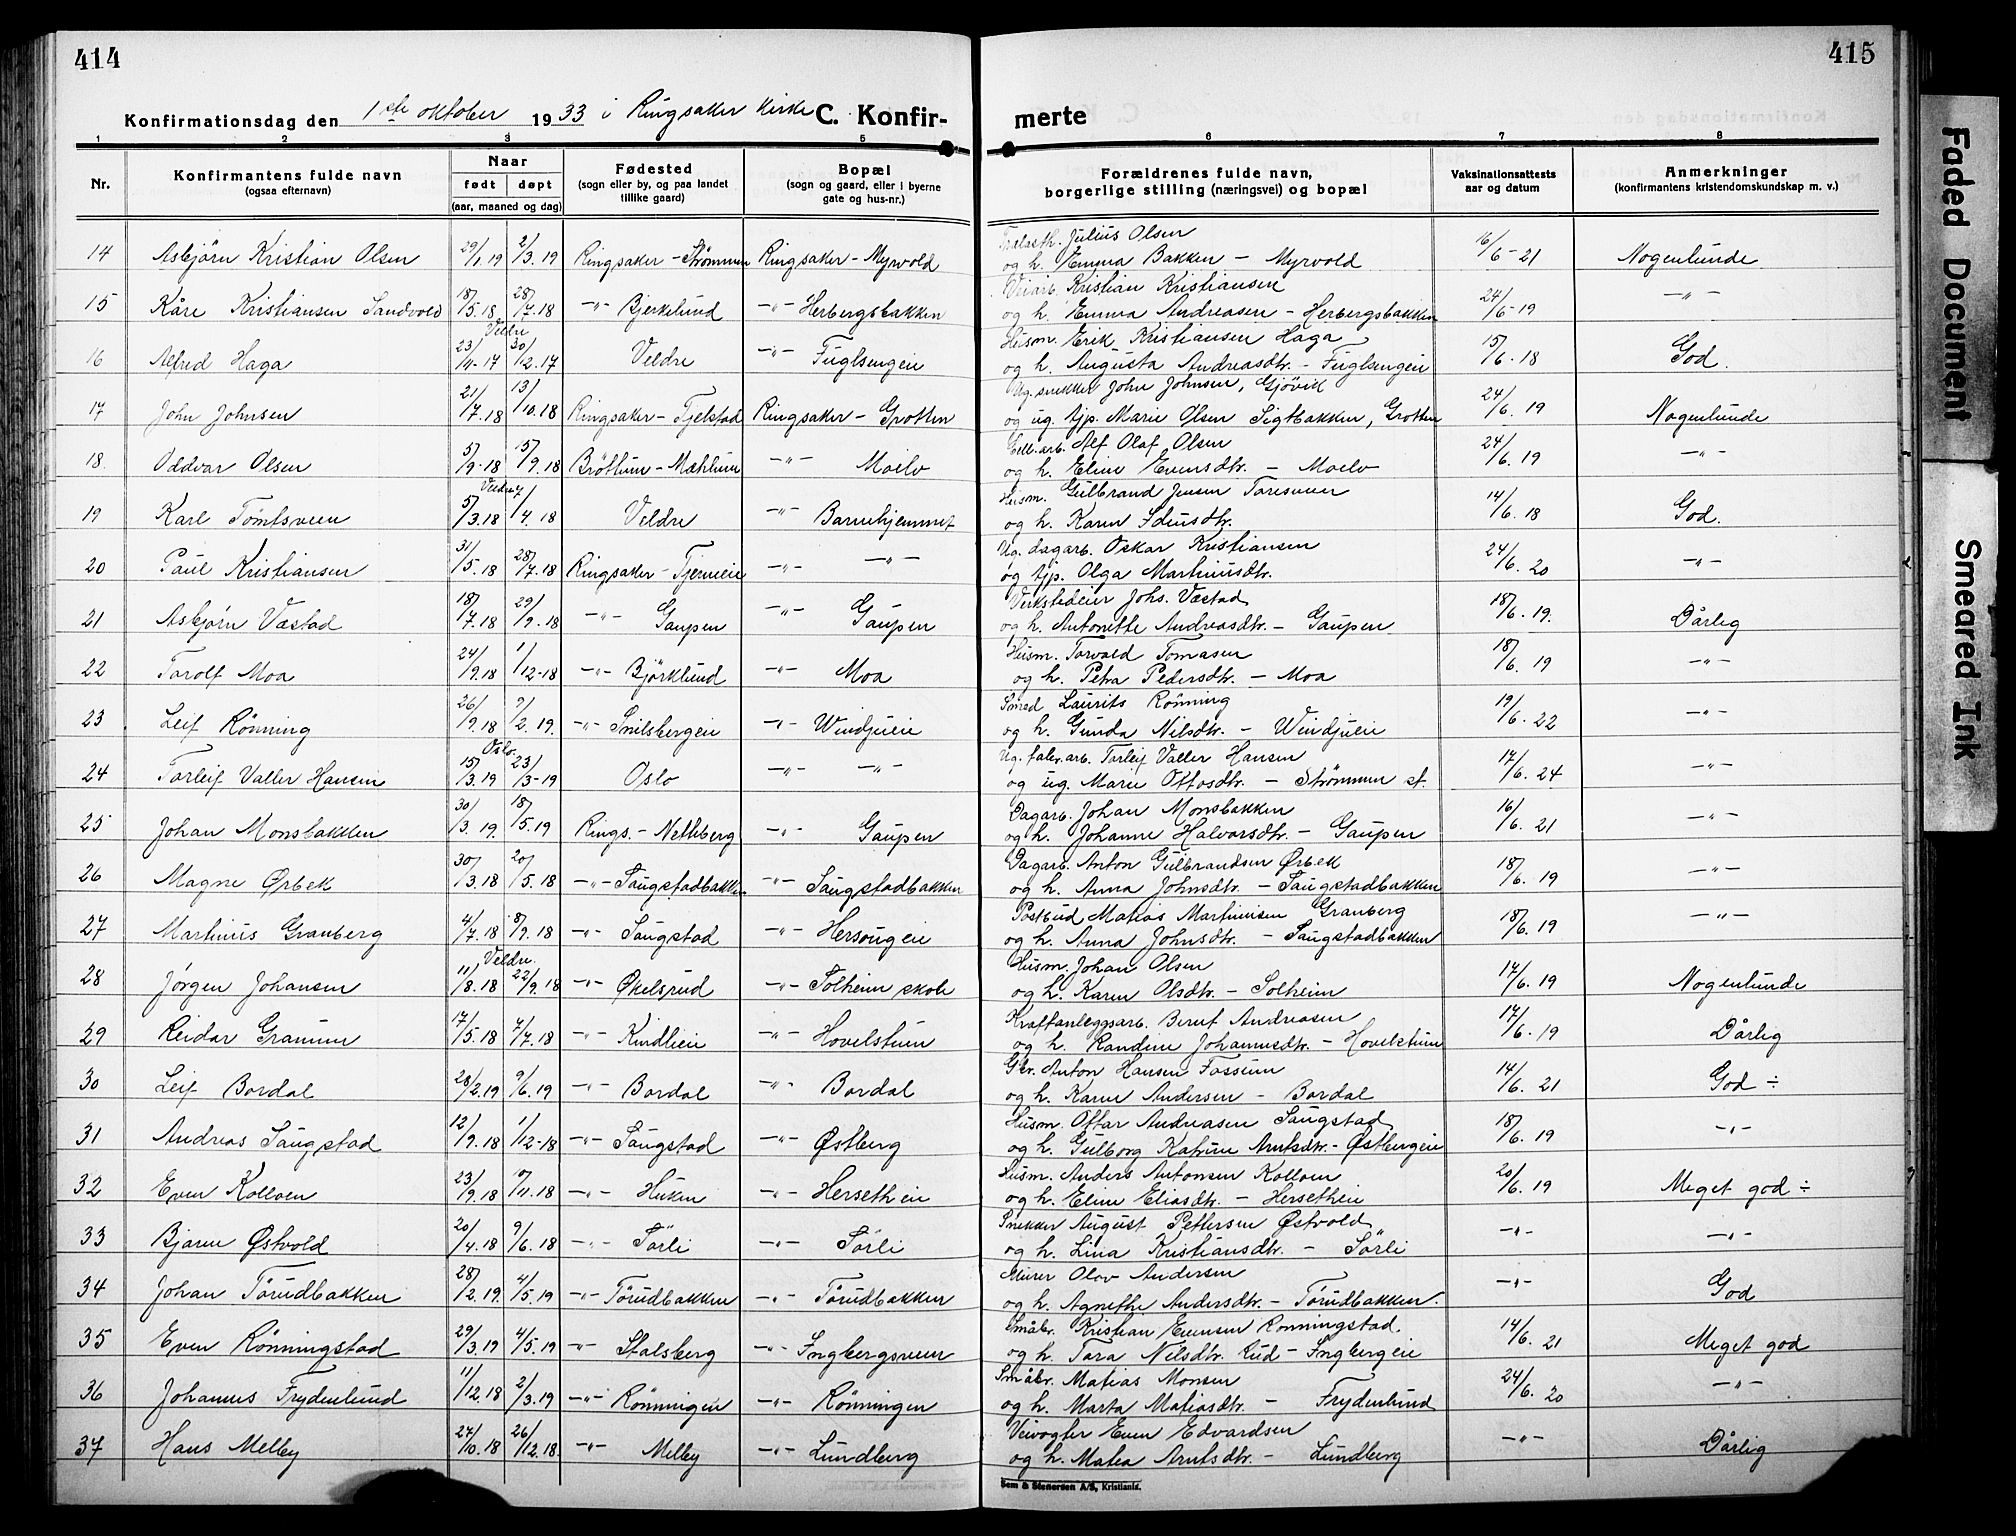 414
415
Konfirmationsdag den 1ste oktober 1933 i Ringsaker kirke C. Konfir-
merte
1 2 3 4 5 6 7 8
Nr. Konfirmantens fulde navn (ogsaa efternavn) Naar født døpt (aar, maaned og dag) Fødested (sogn eller by, og paa landet tillike gaard) Bopæl (sogn og gaard, eller i byerne gate og hus-nr.) Forældrenes fulde navn, borgerlige stilling (næringsvei) og bopæl Vaksinationsattests aar og datum Anmerkninger (konfirmantens kristendomskundskap m. v.)
14 Asbjörn Kristian Olsen 29/1.19 2/3.19 Ringsaker - Strømmen Ringsaker - Myrvold Julius Olsen
og h. Emma Bakken - Myrvold 16/6-21 Nogenlunde
15 Kåre Kristiansen Sandvold 18/5.18 28/7.18 -"- Bjerkelund -"- Herbergsbakken Veiarb. Kristian Kristiansen
og h. Emma Andreasen - Herbergsbakken 24/6-19 -"-
16 Alfred Haga 23/11-17 Veldre 30/12.17 Veldre -"- Fuglsengen Husm. Erik Kristiansen Haga
og h. Augusta Andreasdtr. - Fuglsengen 15/6.18 God.
17 John Johnsen 21/7.18 13/10.18 Ringsaker - Tjelstad Ringsaker - Grotten Ug. snekker John Johnsen, Gjövik
og ug. tjp. Marie Olsen Sigtbakken, Grotten 24/6.19 Nogenlunde
18. Oddvar Olsen 5/9-18 15/9.18 Brøttum - Mæhlum -"- Moelv Cell.arb. Alf Olaf Olsen
og h. Eline Evensdtr. - Moelv 24/6.19 -"-
19 Karl Tömtsveen 5/3.18 Veldre 7/4.18 Veldre -"- Barnehjemmet Husm. Gulbrand Jensen Toresveen
og h. Karen Idensdtr. 14/6.18 God.
20 Paul Kristiansen 31/5.18 28/7.18 Ringsaker - Tjerneie -"- -"- Ug. dagarb. Oskar Kristiansen
og tjp. Olga Martinusdtr. 24/6.20 -"-
21 Asbjørn Væstad 18/7.18 29/9-18 -"- Gaupen -"- Gaupen Verkstedeier Johs. Væstad
og h. Antonette Andreasdtr. - Gaupen 18/6.19. Dårlig
22 Torolf Moa 24/9.18 1/12-18 -"- Björklund -"- Moa Husm. Torvald Tomasen
og h. Petra Pedersdtr. - Moa 18/6.19 -"-
23 Leif Rönning 26/9.18 9/2.19. -"- Snilsbergeie -"- Windjueie Smed Laurits Rönning
og h. Gunda Nilsdtr. - Windjueie 19/6.22 -"-
24 Torleif Valler Hansen 15/3.19 Oslo. 23/3-19 Oslo -"- -"- Ug. fabr.arb. Torleif Valler Hansen
og ug. Marie Ottosdtr. - Strømmen st. 17/6.24 -"-
25 Johan Monsbakken 30/3.19. 18/5.19 Rings. - Nethberg -"- Gaupen Dagarb. Johan Monsbakken
og h. Johanne Halvorsdtr. - Gaupen 16/6.21 -"-
26 Magne Ørbek 30/3.18 20/5.18 -"- Saugstadbakken -"- Saugstadbakken Dagarb. Anton Gulbrandsen Ørbek
og h. Anna Johnsdtr. - Saugstadbakken 18/6.19 -"-
27 Martinus Granberg 4/7.18 8/9.18 -"- Saugstad -"- Hersougeie Postbud Matias Martinisen Granberg
og h. Anna Johnsdtr. - Saugstadbakken 18/6.19 -"-
28 Jørgen Johansen 11/8.18 Veldre. 22/9.18 -"- Økelsrud -"- Solheim skole Husm. Johan Olsen
og h. Karen Olsdtr. - Solheim 17/6.19 Nogenlunde
29 Reidar Granum 17/5.18 7/7.18 -"- Kindlien -"- Hovelstuen Kraftanleggsarb. Bernt Andreasen
og h. Randine Johannesdtr. - Hovelstuen 17/6.19 Dårlig
30 Leif Bordal 28/2.19 9/6.19 -"- Bordal -"- Bordal Gbr. Anton Hansen Fossum
og h. Karen Andersen - Bordal 14/6.21 God ÷
31 Andreas Saugstad 12/9.18 1/12-18 -"- Saugstad -"- Østberg Husm. Ottar Andreasen Saugstad
og h. Gulborg Katrine Arntsdtr. - Østbergeie 18/6.19 -"-
32 Even Kolloen 23/9.18 /11.18 -"- Huken -"- Hersetheie Husm. Anders Antonsen Kolloen
og h. Eline Eliasdtr. - Hersetheie 20/6.19 Meget god ÷
33 Bjarne Østvold 20/4.18 9/6.18 -"- Sörli -"- Sörli Snekker August Pettersen Østvold
og h. Lina Kristiansdtr. - Sörli -"- -"-
34 Johan Törudbakken 28/2.19. 4/5.19 -"- Törudbakken -"- Törudbakken Murer Olav Andersen
og h. Agnethe Andersdtr. - Törudbakken. -"- God
35 Even Rönningstad 29/3.19 4/5.19 -"- Stalsberg -"- Ingbergsveen Småbr. Kristian Evensen Rønningstad.
og h. Tora Nilsdtr. Rud - Ingbergeie 14/6.21 Meget god
36 Johannes Frydenlund 11/12.18 2/3.19 -"- Rönningen -"- Rönningen Småbr. Matias Monsen
og h. Marta Matiasdtr. - Frydenlund 24/6.20 -"-
37 Hans Melby 27/10.18 26/12.18. -"- Melby -"- Lundberg Veivogter Even Edvardsen
og h. Matea Arntsdtr. - Lundberg -"- Dårlig
Sem & Stenersen A/S, Kristiania.
Faded Document
Smeared Ink